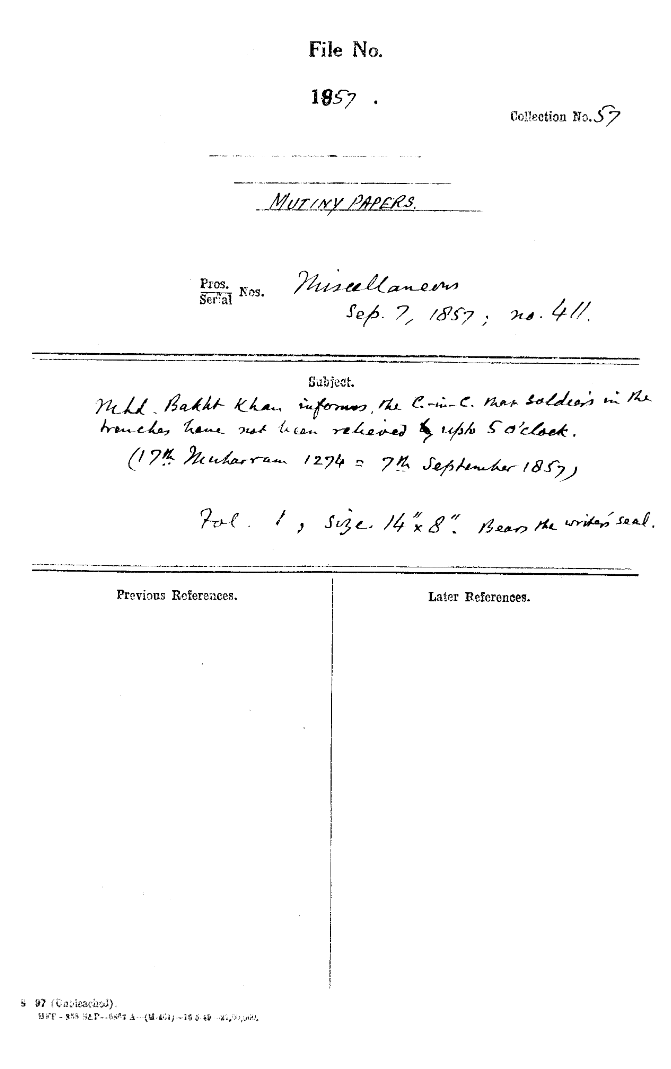 File No.
1857 .
Collection No. 57
MUTINY PAPERS.
Pros.
Serial Nos.
Miscellaneous
Sep. 7, 1857; no. 411.
Subject.
Mhd. Bakht Khan informs, the C.-in-C. that soldiers in the
trenches have not been relieved upto 5 o'clock.
(17th Muharram 1274 = 7th September 1857)
Fol. 1, size. 14" x 8". Bears the writer's seal.
Previous References.
Later References.
S 97 (Unbleached).